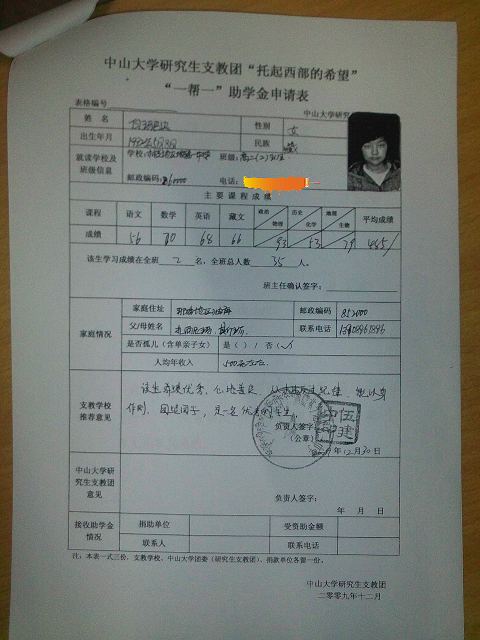 中山大学研究生支教团“托起西部的希望”
“一帮一”助学金申请表
表格编号 中山大学研究
姓 名 性别 女
出生年月 民族 藏
就读学校及班级信息 学校： 班级：高二(2)班
邮政编码： 电话：
主 要 课 程 成 绩
课程 语文 数学 英语 藏文 政治 物理 历史 化学 地理 生物 平均成绩
成绩 56 70 68 66 93 53 79
该生学习成绩在全班 2 名，全班总人数 35 人。
班主任确认签字：
家庭情况 家庭住址 邮政编码 852000
父/母姓名 联系电话
是否孤儿（含单亲子女） 是（ ）/ 否（√）
人均年收入 500元左右
支教学校推荐意见
作则，团结同学，是一名优秀的学生。
负责人签字：
（公章）
年12月30日
中山大学研究生支教团意见
负责人签字：
年 月 日
接收助学金情况 捐助单位 受资助金额
联系人 联系电话
注：本表一式三份，支教学校、中山大学团委（研究生支教团）、捐款单位各留一份。
中山大学研究生支教团
二零零九年十二月